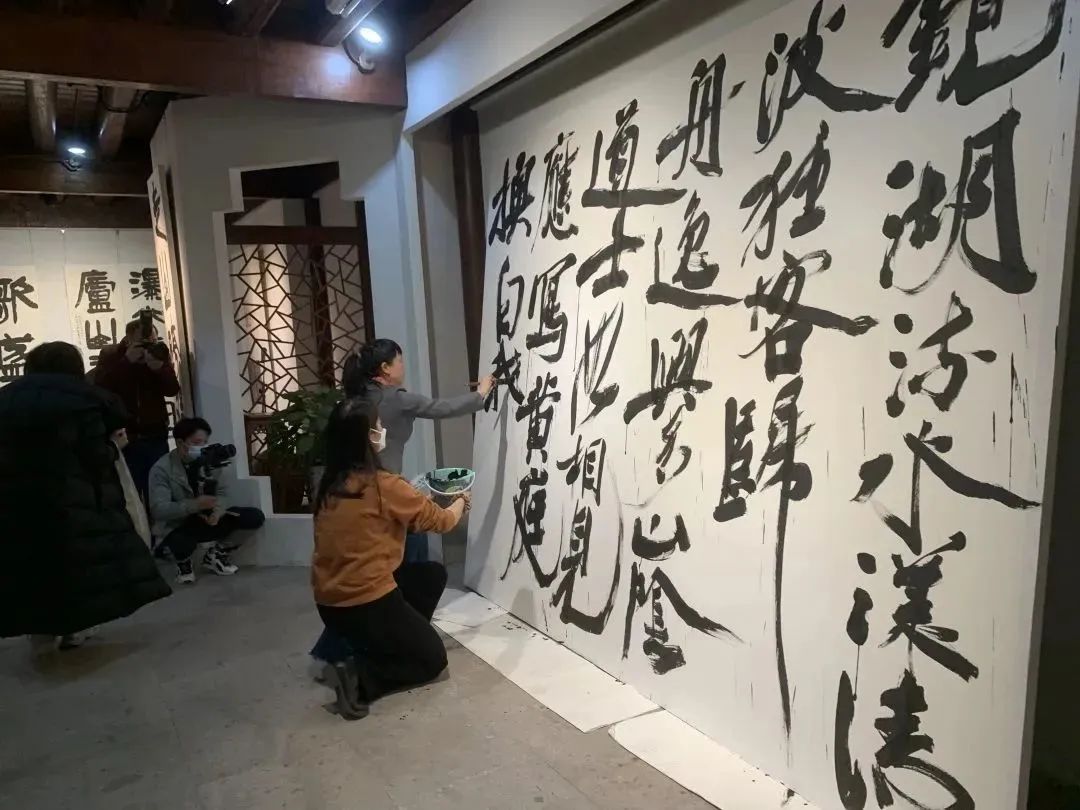 鏡湖流水漾清
波狂客歸
舟逸興多山陰
道士如相見
應寫黄庭
換白我
瀑
廬山
歌